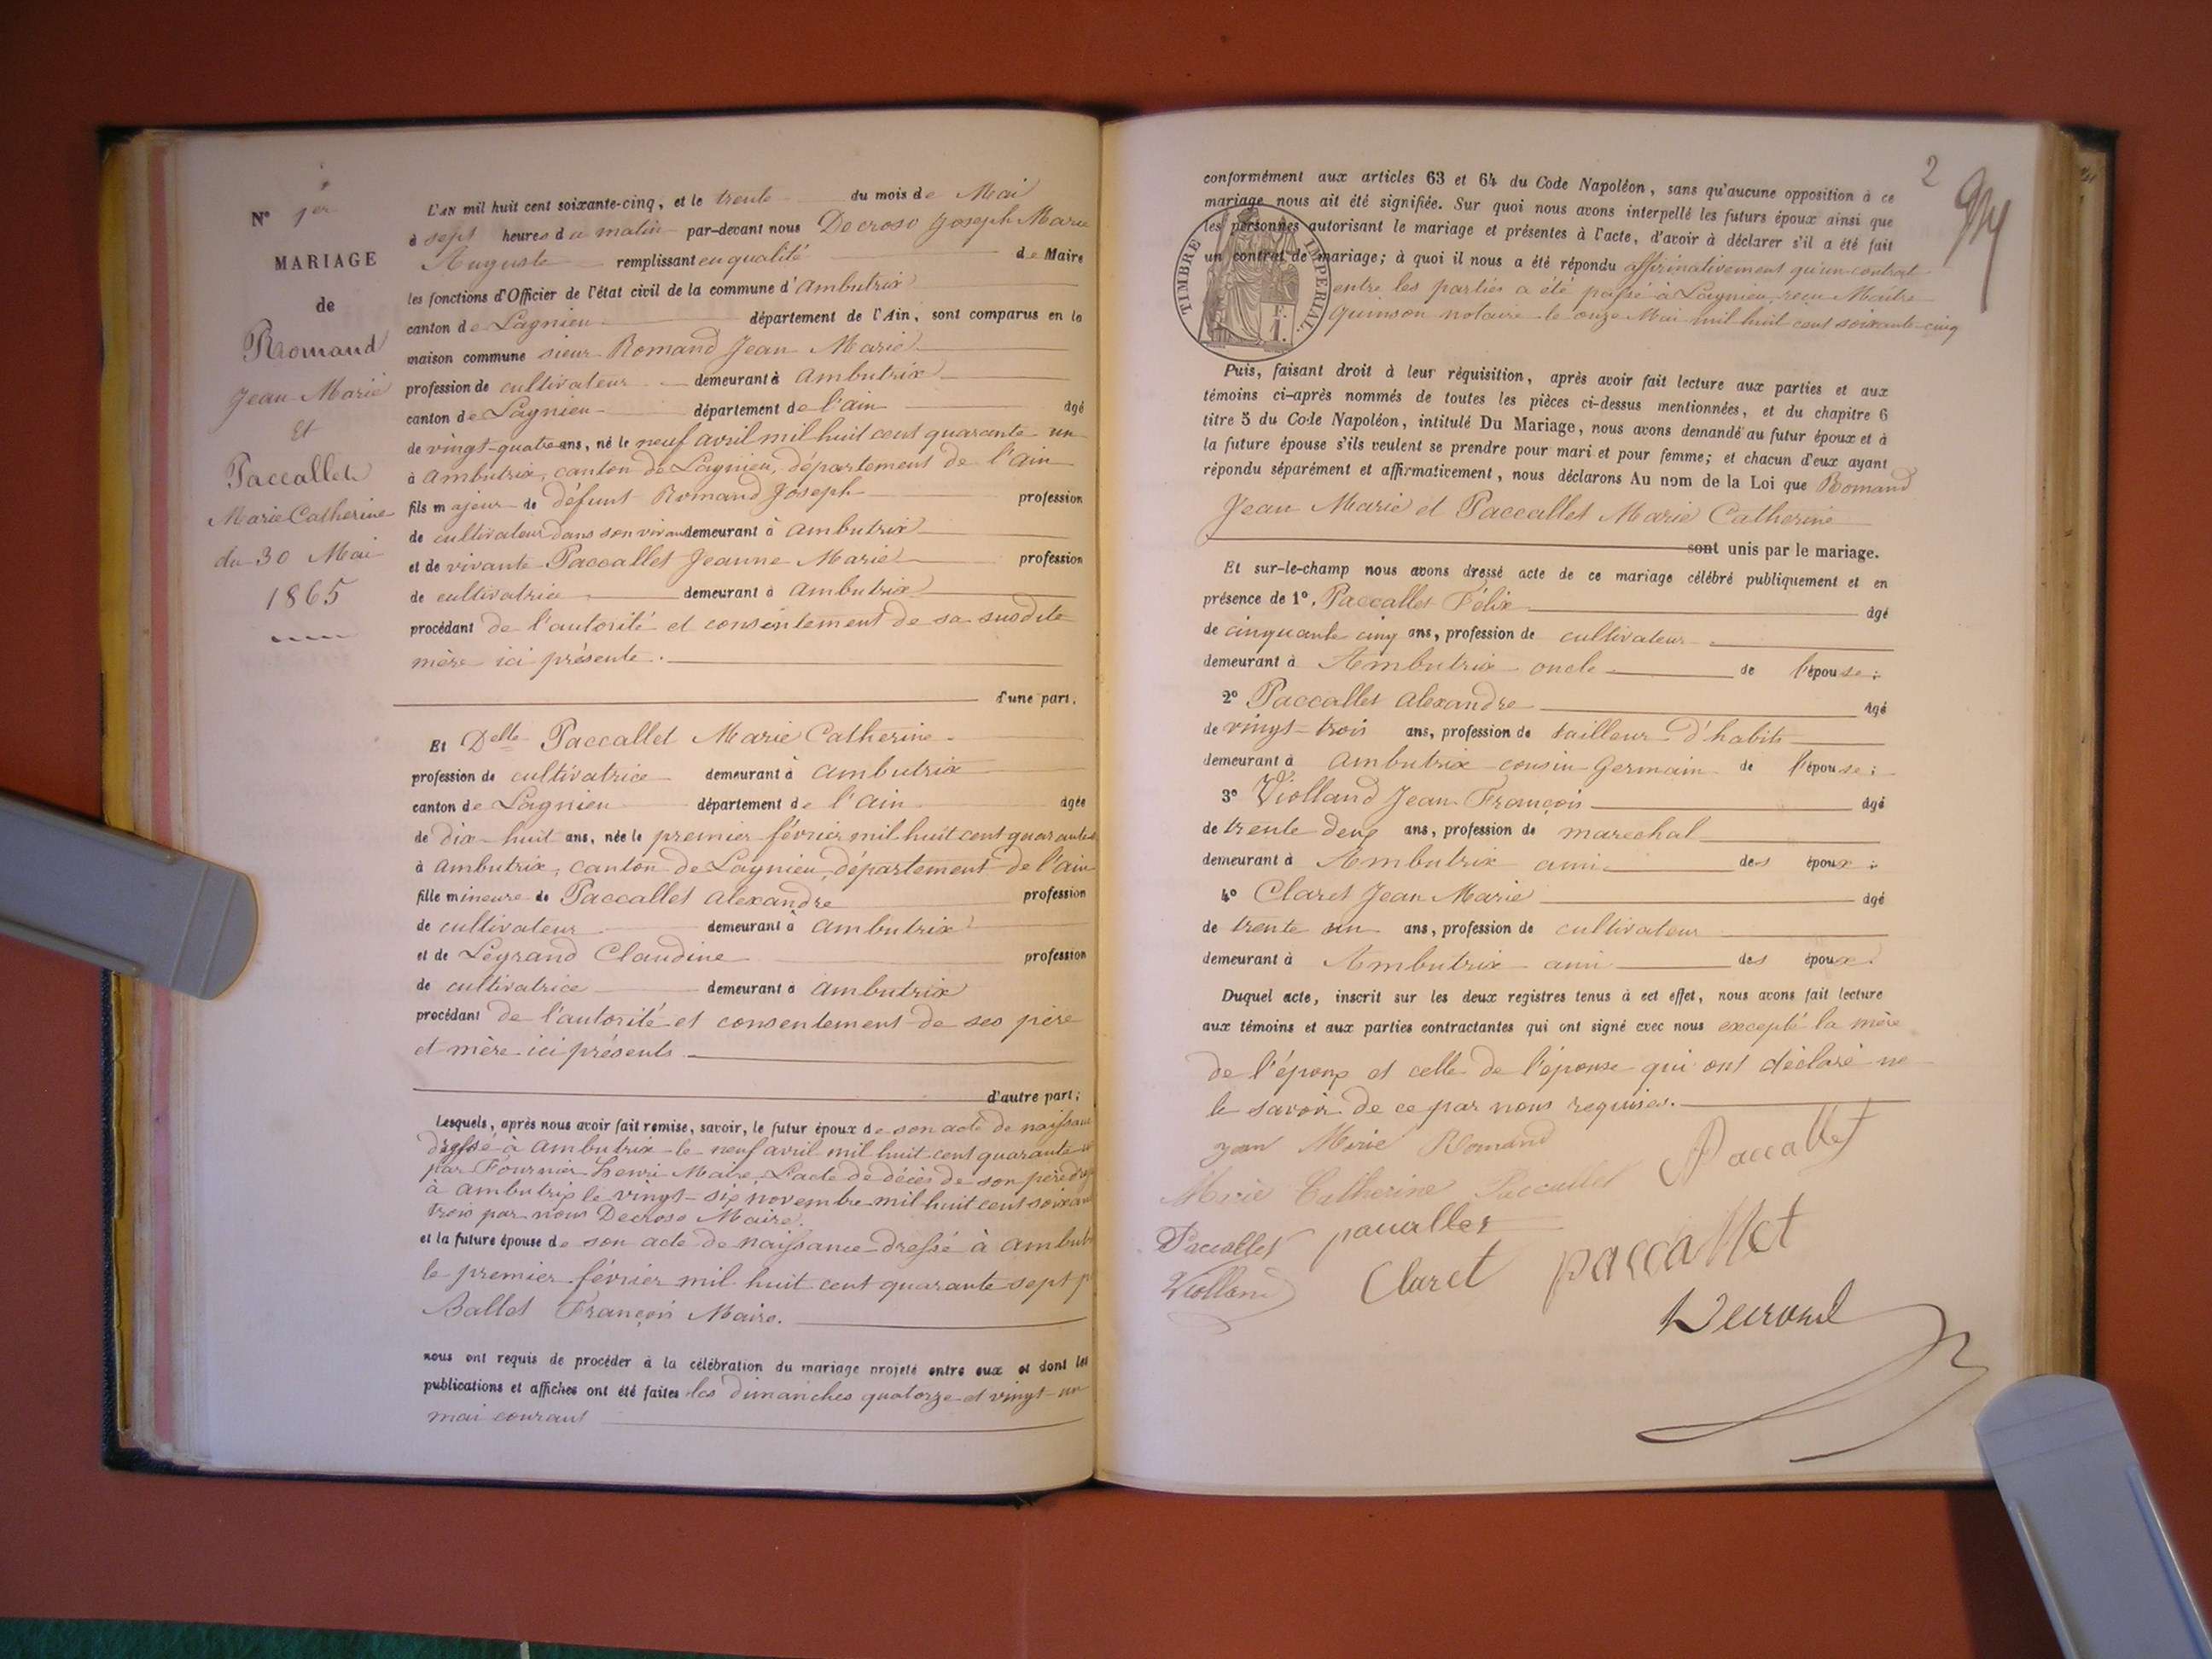 N° 1er
MARIAGE
de
Romand
Jean Marie
Et
Paccallet
Marie Catherine
du 30 Mai
1865
L'AN mil huit cent soixante-cinq, et le trente du mois de Mai
à sept heures du matin par-devant nous Decroso Joseph Marie
Auguste remplissant en qualité de Maire
les fonctions d'Officier de l'état civil de la commune d'ambutrix
canton de Lagnieu département de l'Ain, sont comparus en la
maison commune sieur Romand Jean Marie
profession de cultivateur demeurant à ambutrix
canton de Lagnieu département de l'ain âgé
de vingt-quatre ans, né le neuf avril mil huit cent quarante un
à ambutrix, canton de Lagnieu, département de l'ain
fils majeur de défunt Romand Joseph profession
de cultivateur dans son vivant demeurant à ambutrix
et de vivante Paccallet Jeanne Marie profession
de cultivatrice demeurant à ambutrix
procédant de l'autorité et consentement de sa susdite
mère ici présente.
d'une part.
Et Delle Paccallet Marie Catherine
profession de cultivatrice demeurant à ambutrix
canton de Lagnieu département de l'ain âgée
de dix-huit ans, née le premier février mil huit cent quarante
à ambutrix, canton de Lagnieu, département de l'ain
fille mineure de Paccallet alexandre profession
de cultivateur demeurant à ambutrix
et de Legrand Claudine profession
de cultivatrice demeurant à ambutrix
procédant de l'autorité et consentement de ses père
et mère ici présents.
d'autre part;
Lesquels, après nous avoir fait remise, savoir, le futur époux de son acte de naissance
dressé à ambutrix le neuf avril mil huit cent quarante
par Fournier henri Maire, L'acte de décès de son père
à ambutrix le vingt-six novembre mil huit cent soixante
trois par nous Decroso Maire.
et la future épouse de son acte de naissance dressé à ambut
le premier février mil huit cent quarante sept p
Ballet François Maire.
nous ont requis de procéder à la célébration du mariage projeté entre eux et dont les
publications et affiches ont été faites les dimanches quatorze et vingt-un
mai courant
2
conformément aux articles 63 et 64 du Code Napoléon, sans qu'aucune opposition à ce
mariage nous ait été signifiée. Sur quoi nous avons interpellé les futurs époux ainsi que
les personnes autorisant le mariage et présentes à l'acte, d'avoir à déclarer s'il a été fait
un contrat de mariage; à quoi il nous a été répondu affirmativement qu'un contrat
entre les parties a été passé à Lagnieu, reçu Maître
Quinson notaire le onze Mai mil huit cent soixante-cinq
TIMBRE IMPÉRIAL.
Puis, faisant droit à leur réquisition, après avoir fait lecture aux parties et aux
témoins ci-après nommés de toutes les pièces ci-dessus mentionnées, et du chapitre 6
titre 5 du Code Napoléon, intitulé Du Mariage, nous avons demandé au futur époux et à
la future épouse s'ils veulent se prendre pour mari et pour femme; et chacun d'eux ayant
répondu séparément et affirmativement, nous déclarons Au nom de la Loi que Romand
Jean Marie et Paccallet Marie Catherine
sont unis par le mariage.
Et sur-le-champ nous avons dressé acte de ce mariage célébré publiquement et en
présence de 1°. Paccallet Félix âgé
de cinquante cinq ans, profession de cultivateur
demeurant à Ambutrix oncle de l'épouse;
2° Paccallet alexandre âgé
de vingt-trois ans, profession de tailleur d'habits
demeurant à ambutrix cousin Germain de l'épouse;
3° Violland Jean François âgé
de trente deux ans, profession de marechal
demeurant à Ambutrix ami des époux;
4° Claret Jean Marie âgé
de trente un ans, profession de cultivateur
demeurant à Ambutrix ami des époux.
Duquel acte, inscrit sur les deux registres tenus à cet effet, nous avons fait lecture
aux témoins et aux parties contractantes qui ont signé avec nous excepté la mère
de l'époux et celle de l'épouse qui ont déclaré ne
le savoir de ce par nous requises.
jean Marie Romand
Paccallet
Marie Catherine Paccallet
Paccallet paccallet
Violland Claret paccallet